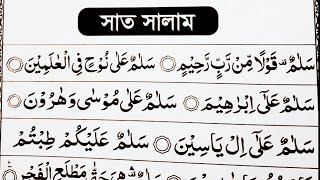 সাত সালাম
سَلٰمٌ ۟ قَوْلًا مِّنْ رَّبٍّ رَّحِيْمٍ ۝ سَلٰمٌ عَلٰى نُوْحٍ فِى الْعٰلَمِيْنَ ۝
سَلٰمٌ عَلٰٓى اِبْرٰهِيْمَ ۝ سَلٰمٌ عَلٰى مُوْسٰى وَهٰرُوْنَ ۝
سَلٰمٌ عَلٰٓى اِلْ يَاسِيْنَ ۝ سَلٰمٌ عَلَيْكُمْ طِبْتُمْ
مَطْلَعِ الْفَجْرِ